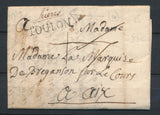 a Madame
TOULON
Madame La Marquise
De Bregançon sur Le Cours
a aix